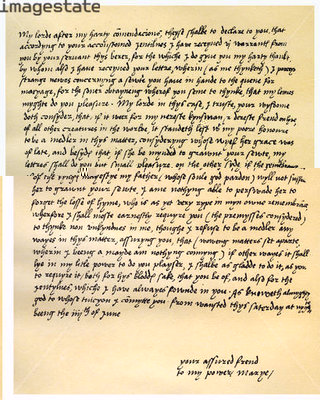 imagestate
My lorde after my harty comendacions, thyse shalbe to declare to you, that
accordyng to your accustomed jentilnes I have receyved vj warrants from
you by your servant thys berer, for the wiche I do gyve you my harty thanks,
by whom also I have receyved your letter, wherin (as me thynketh) I perceyve
strange newes concernyng a sewte you have in hande to the quene for
maryage, for the soner obtaynyng wherof you seme to thynke, that my letters
myght do you pleasure. My lorde in thys case, I truste, your wysdome
doth consyder, that if it wer for my nereste kynsman, & dereste frend
of all other creatures in the worlde, it standeth lest wt my poore honoure
to be a medler in thys matter, consyderyng whose wyef her grace was
of late, and besyds that if she be mynded to graunt your sewte, my
letters shall do you but small pleasure. on the other syde if the remembrance
of the kyngs majestye my father (whose soule god pardon) wyll not suffre
her to graunt your sewte, I ame nothyng able to perswade her to
forget the losse of hyme, who is as yet very rype in myn owne remembrance
wherfore I shall moste earnestly requyre you (the premysses consydered)
to thynke non unkyndnes in me, thoughe I refuse to be a medler any
wayes in thys matter, assuryng you, that (wowyng matters set aparte,
wherin I being a mayde am nothyng connyng) if other wayes it shall
lye in my litle power to do you pleasure, I shalbe as gladde to do it, as you
to requyre it, both for hys blodds sake, that you be of, and also for the
jentylnes, whiche I have allwayes fownde in you. As knoweth almyghty
god to whose tuicyon I comytte you. From wansted thys saterday at nyght
being the iiijth of June
your assured frend
to my power, Marye